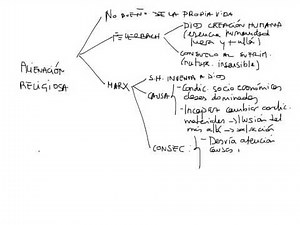 NO DUEÑO DE LA PROPIA VIDA
ALIENACIÓN
RELIGIOSA
FEUERBACH
DIOS CREACIÓN HUMANA
(esencia humanidad
fuera y + allá)
CONSUELO AL SUFRIM.
(natur. insensible)
MARX
S.H. INVENTA A DIOS
CAUSA
- Condic. socio económicas
clases dominadas
- Incapaz cambiar condic.
materiales → ilusión del
más allá → salvación
CONSEC.
- Desvía atención
causas